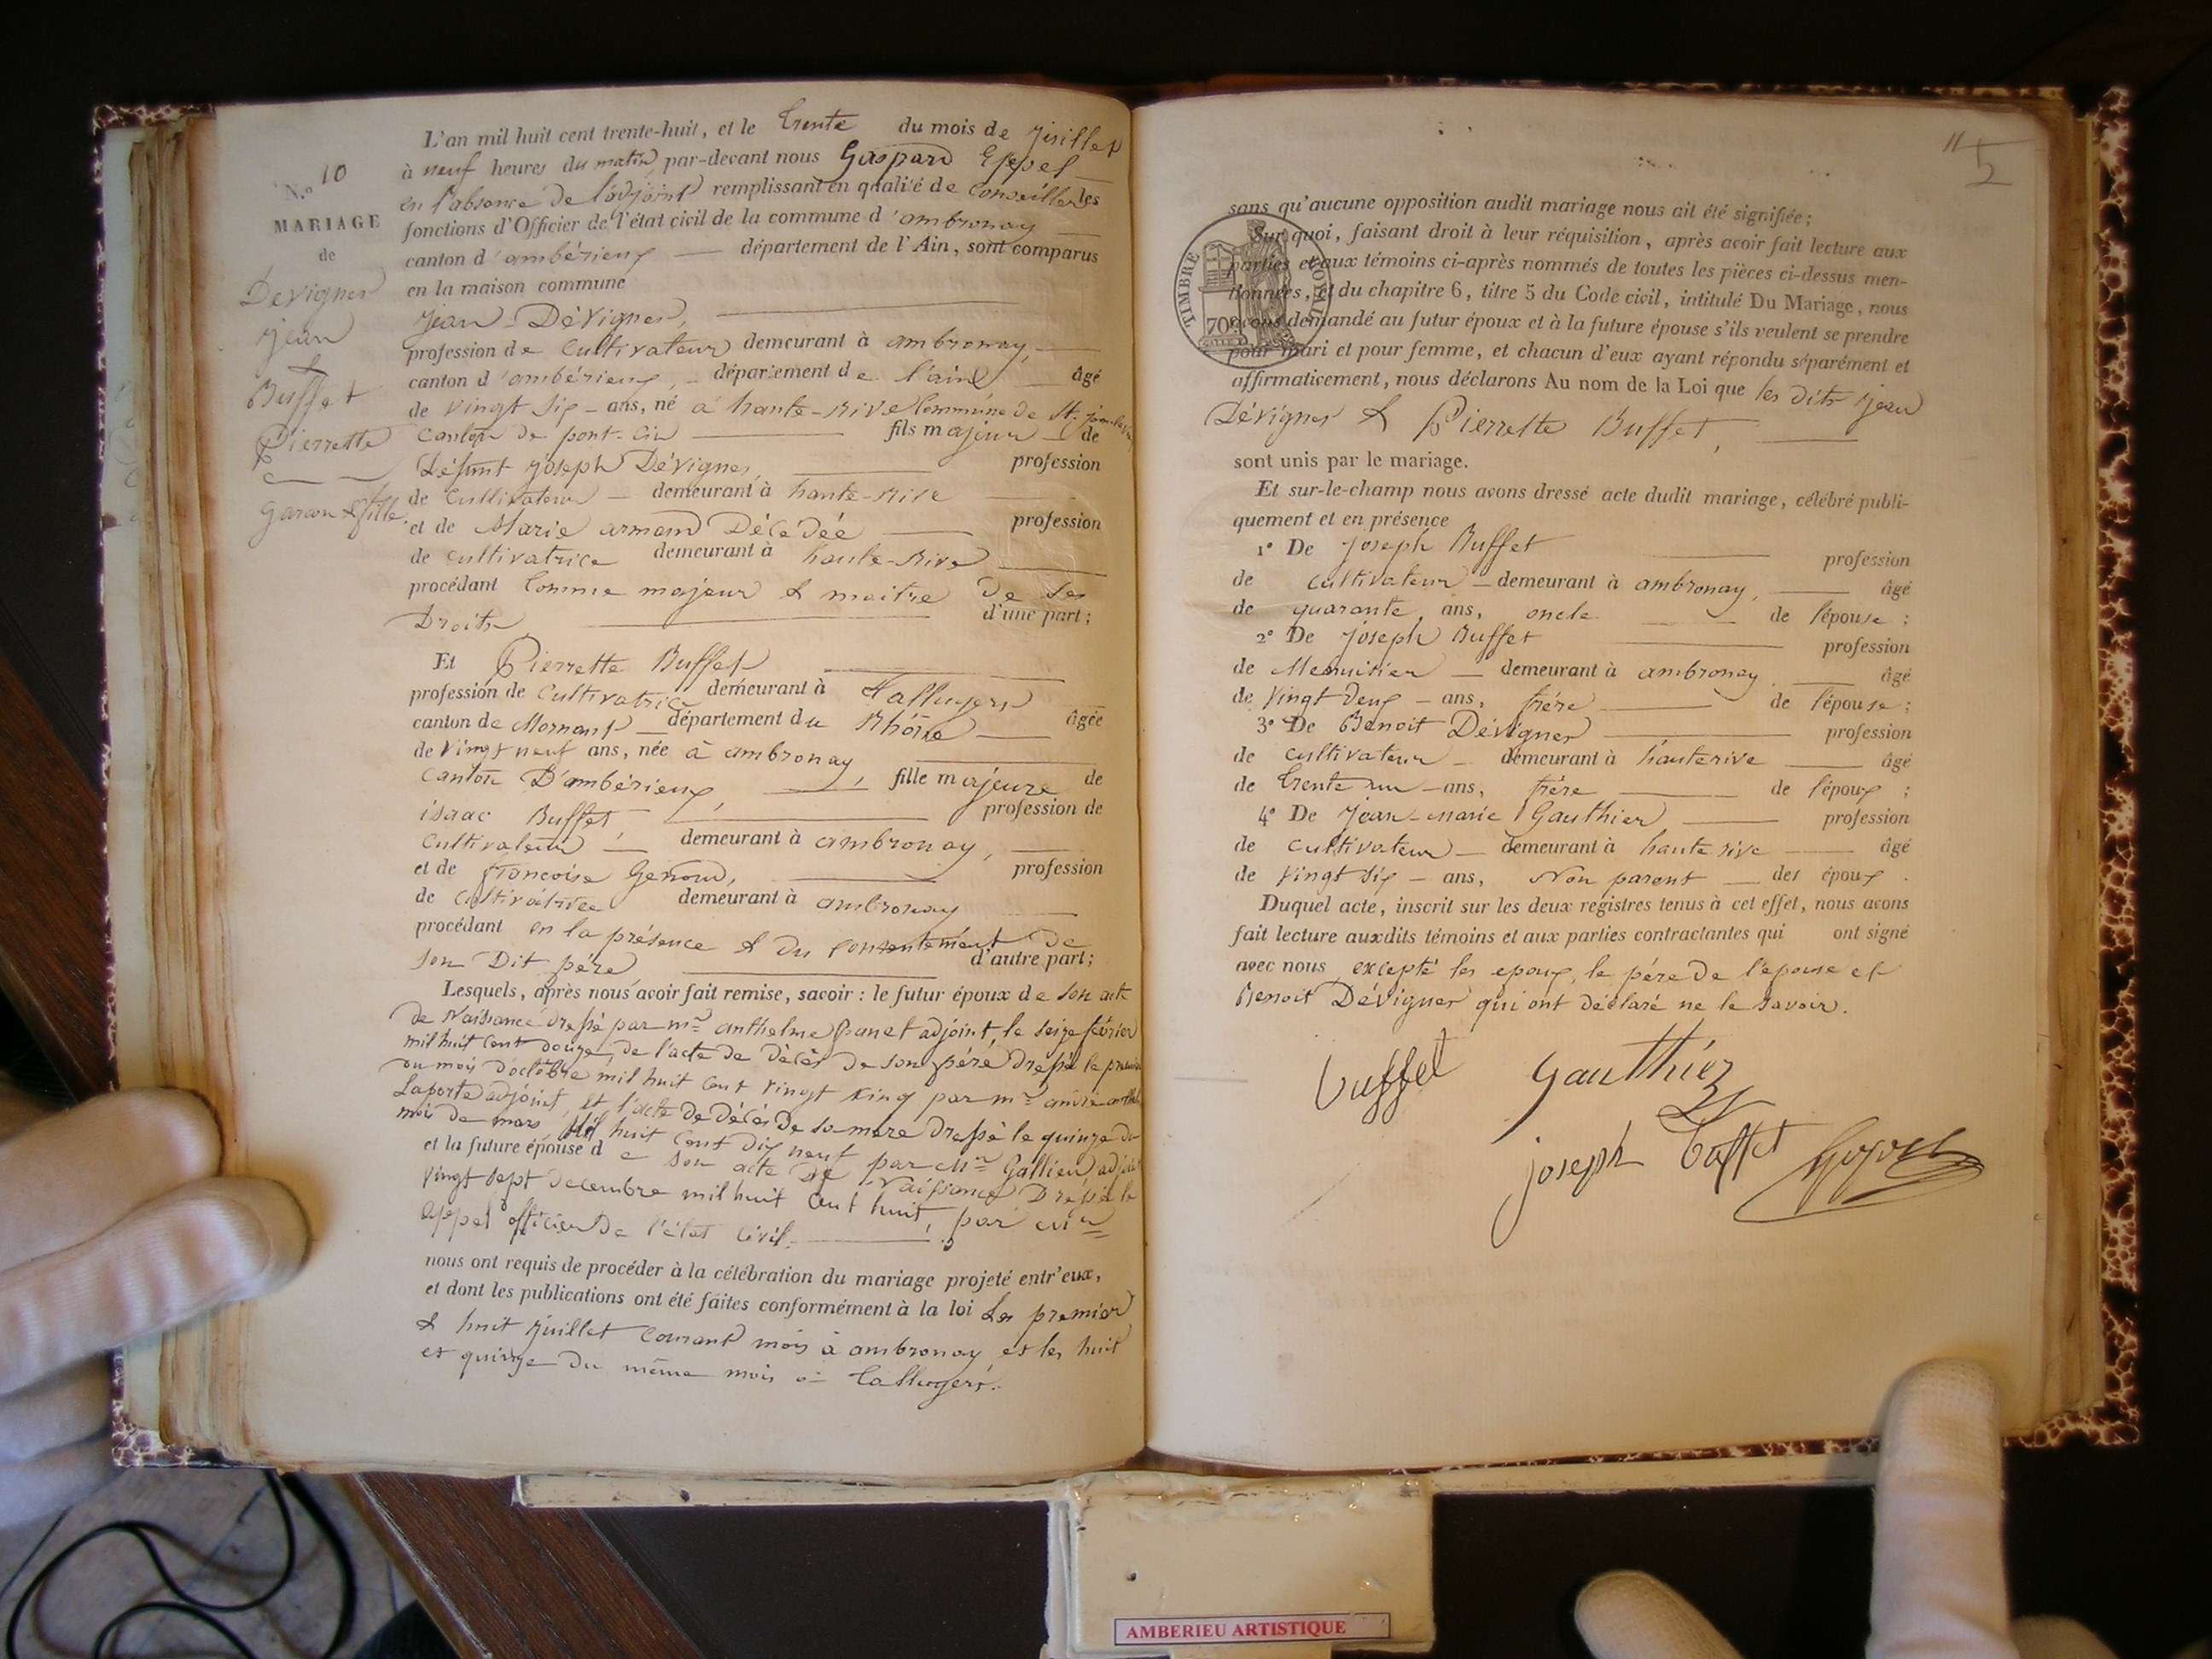 L'an mil huit cent trente-huit, et le trente du mois de juillet
à neuf heures du matin, par-devant nous Gaspard
en l'absence de l'adjoint remplissant en qualité de Conseiller les
fonctions d'Officier de l'état civil de la commune d'ambronay
canton d'ambérieux département de l'Ain, sont comparus
en la maison commune
N.º 10
MARIAGE
de
Dévignes
jean
&
Buffet
Pierrette
Garcon & fille
jean Dévignes,
profession de Cultivateur demeurant à ambronay,
canton d'ambérieux, département de l'ain âgé
de vingt six ans, né à haute-Rive Commune de St.
Canton de pont-Ain fils majeur de
Défunt joseph Dévignes, profession
de Cultivateur demeurant à haute-Rive
et de Marie armand Décédée profession
de cultivatrice demeurant à haute-Rive
procédant Comme majeur & maitre de ses
Droits d'une part;
Et Pierrette Buffet
profession de Cultivatrice demeurant à Talluyers
canton de Mornant département du Rhône âgée
de vingt neuf ans, née à ambronay
canton D'ambérieux, fille majeure de
isaac Buffet, profession de
Cultivateur, demeurant à ambronay,
et de francoise Genoud, profession
de Cultivatrice demeurant à ambronay
procédant en la présence & du Consentement de
son Dit père d'autre part;
Lesquels, après nous avoir fait remise, savoir: le futur époux de son acte
de Naissance Dressé par mr anthelme adjoint, le seize février
mil huit cent douze, de l'acte de Décès de son père Dressé le premier
du mois d'octobre mil huit cent vingt cinq par mr
Laporte adjoint, et l'acte de Décès de sa mère Dressé le quinze du
mois de mars mil huit cent dix neuf par Mr Gallien, adjoint
et la future épouse de son acte de Naissance Dressé le
vingt sept décembre mil huit cent huit, par Mr
appel officier de l'état Civil.
nous ont requis de procéder à la célébration du mariage projeté entr'eux,
et dont les publications ont été faites conformément à la loi Les premier
& huit juillet Courant mois à ambronay et les huit
et quinze du même mois à Talluyers.
5
sans qu'aucune opposition audit mariage nous ait été signifiée;
Sur quoi, faisant droit à leur réquisition, après avoir fait lecture aux
parties et aux témoins ci-après nommés de toutes les pièces ci-dessus men-
tionnées, et du chapitre 6, titre 5 du Code civil, intitulé Du Mariage, nous
avons demandé au futur époux et à la future épouse s'ils veulent se prendre
pour mari et pour femme, et chacun d'eux ayant répondu séparément et
affirmativement, nous déclarons Au nom de la Loi que les dits jean
Dévignes & Pierrette Buffet,
sont unis par le mariage.
TIMBRE ROYAL
70
Et sur-le-champ nous avons dressé acte dudit mariage, célébré publi-
quement et en présence
1º De joseph Buffet profession
de cultivateur demeurant à ambronay, âgé
de quarante ans, oncle de l'épouse;
2º De joseph Buffet profession
de Menuisier demeurant à ambronay, âgé
de vingt deux ans, frère de l'épouse;
3º De Benoit Dévignes profession
de cultivateur demeurant à hauterive âgé
de trente un ans, frère de l'époux;
4º De jean-marie Gauthier profession
de cultivateur demeurant à haute rive âgé
de vingt six ans, Non parent des époux.
Duquel acte, inscrit sur les deux registres tenus à cet effet, nous avons
fait lecture auxdits témoins et aux parties contractantes qui ont signé
avec nous excepté les epoux, le père de l'epouse et
Benoit Dévignes qui ont déclaré ne le savoir.
buffet Gauthier
joseph buffet
AMBERIEU ARTISTIQUE